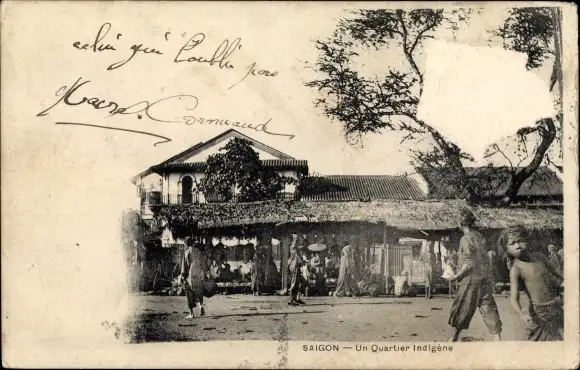 celui qui t'oublie pas
Cormand
SAIGON — Un Quartier Indigène